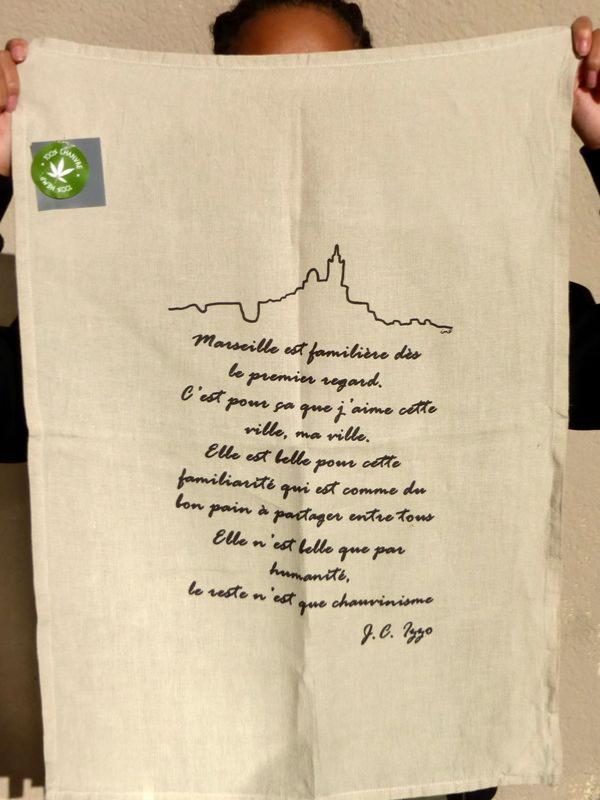 100% CHANVRE
100% HEMP
Marseille est familière dès
le premier regard.
C'est pour ça que j'aime cette
ville, ma ville.
Elle est belle pour cette
familiarité qui est comme du
bon pain à partager entre tous
Elle n'est belle que par
humanité,
le reste n'est que chauvinisme
J.C. Izzo